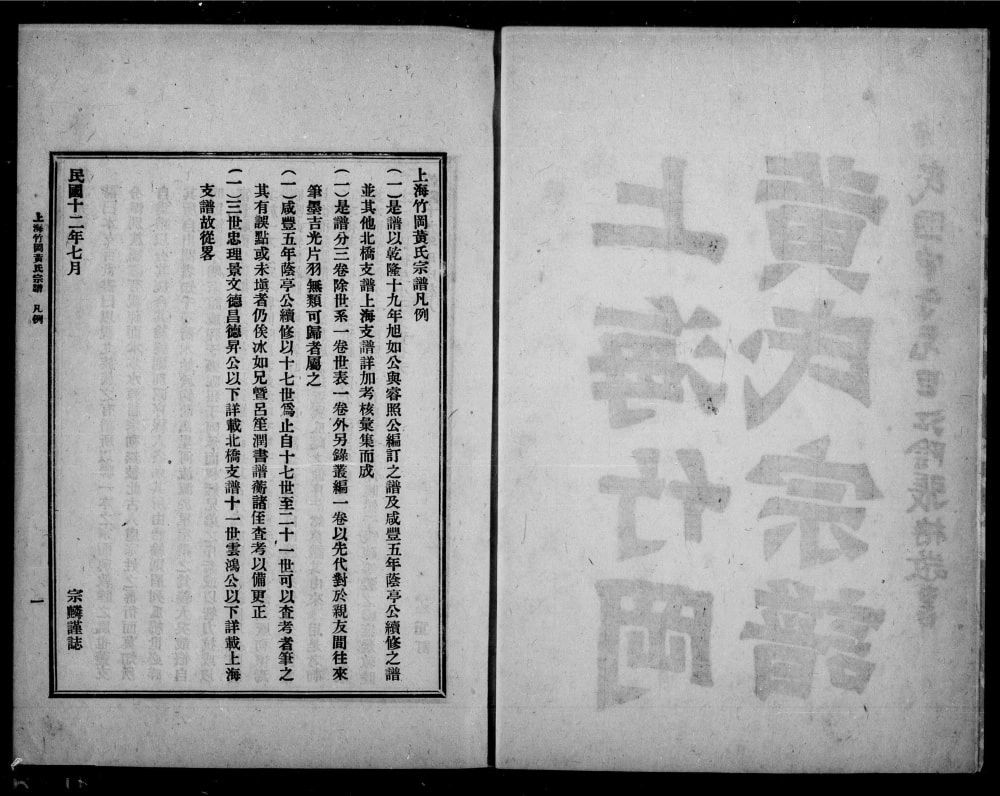 上海竹岡黃氏宗譜凡例
(一)是譜以乾隆十九年旭如公與睿照公編訂之譜及咸豐五年蔭亭公續修之譜
並其他北橋支譜上海支譜詳加考核彙集而成
(一)是譜分三卷除世系一卷世表一卷外另錄叢編一卷以先代對於親友間往來
筆墨吉光片羽無類可歸者屬之
(一)咸豐五年蔭亭公續修以十七世爲止自十七世至二十一世可以査考者筆之
其有誤點或未塡者仍俟冰如兄曁呂笙潤書譜蘅諸侄査考以備更正
(一)三世忠理景文德昌德昇公以下詳載北橋支譜十一世雲鴻公以下詳載上海
支譜故從畧
宗麟謹誌
民國十二年七月
上海竹岡黃氏宗譜 凡例
一
黃氏宗譜
上海竹岡